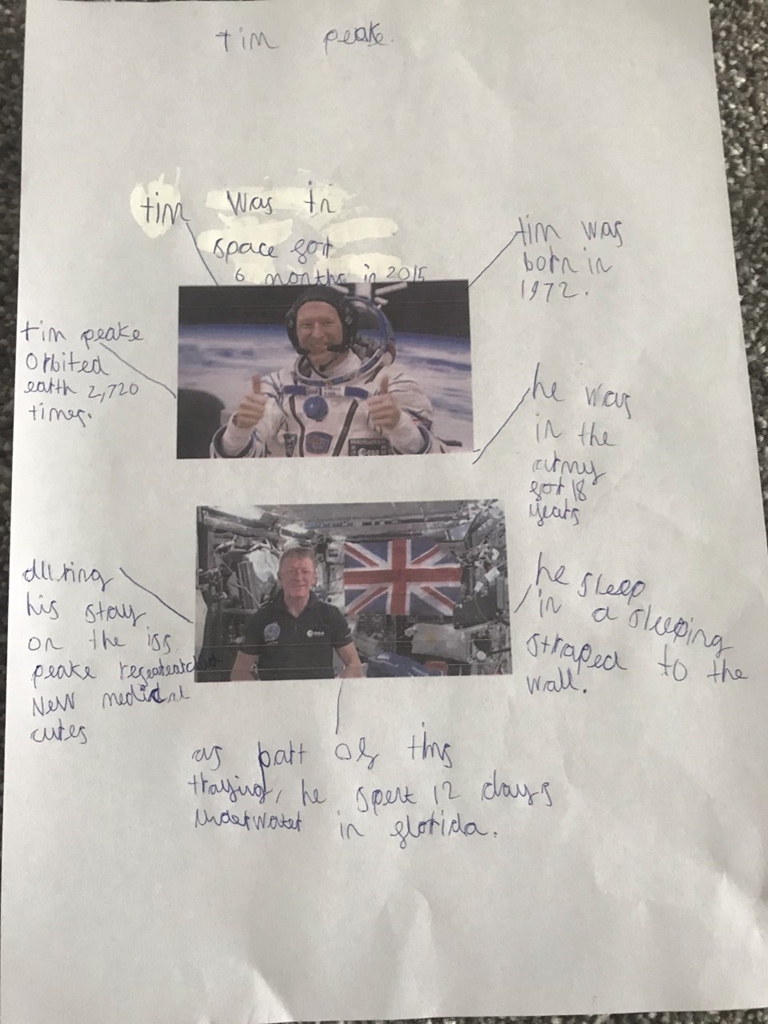 tim peake.
tim was in
space for
6 months in 2015
tim was
born in
1972.
tim peake
orbited
earth 2,720
times.
he was
in the
army
for 18
years
during
his stay
on the iss
peake researched
New medical
cures
he sleep
in a sleeping
straped to the
wall.
as part of this
traying, he spent 12 days
underwater in florida.
esa
esa